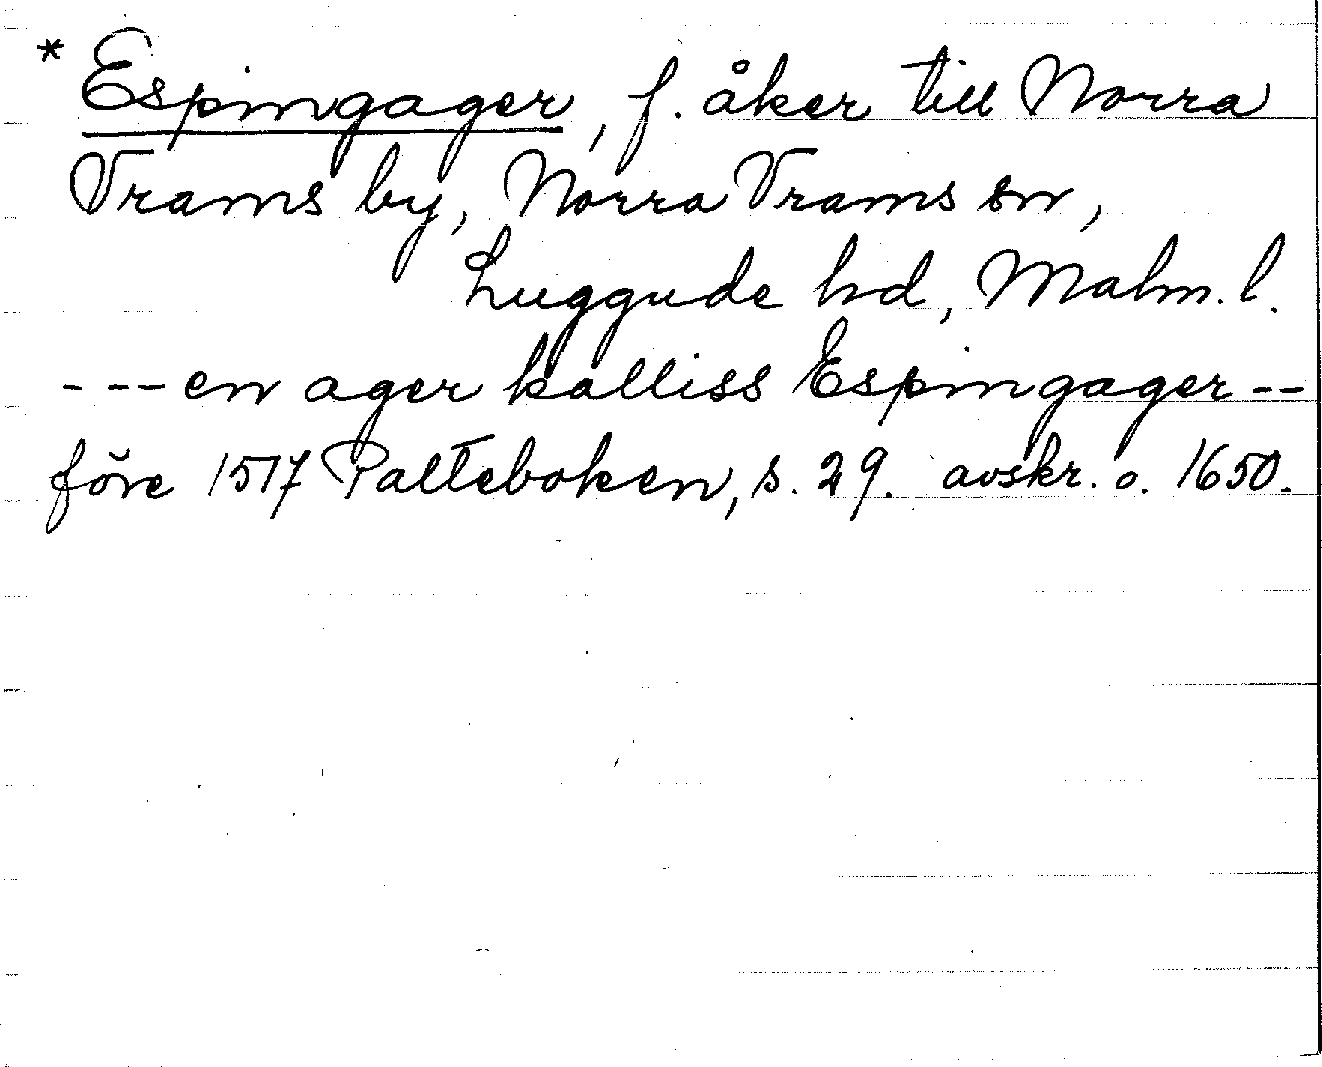 * Espingager, f. åker till Norra
Vrams by, Norra Vrams sn,
Luggude hd, Malm. l.
--- en ager kalliss Espingager --
före 1517 Palteboken, s. 29. avskr. o. 1650.